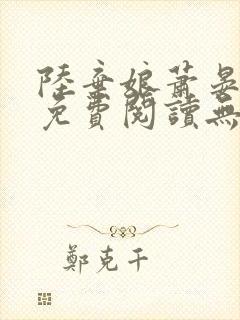 陸棄娘蕭晏
免費閱讀無
鄭克干